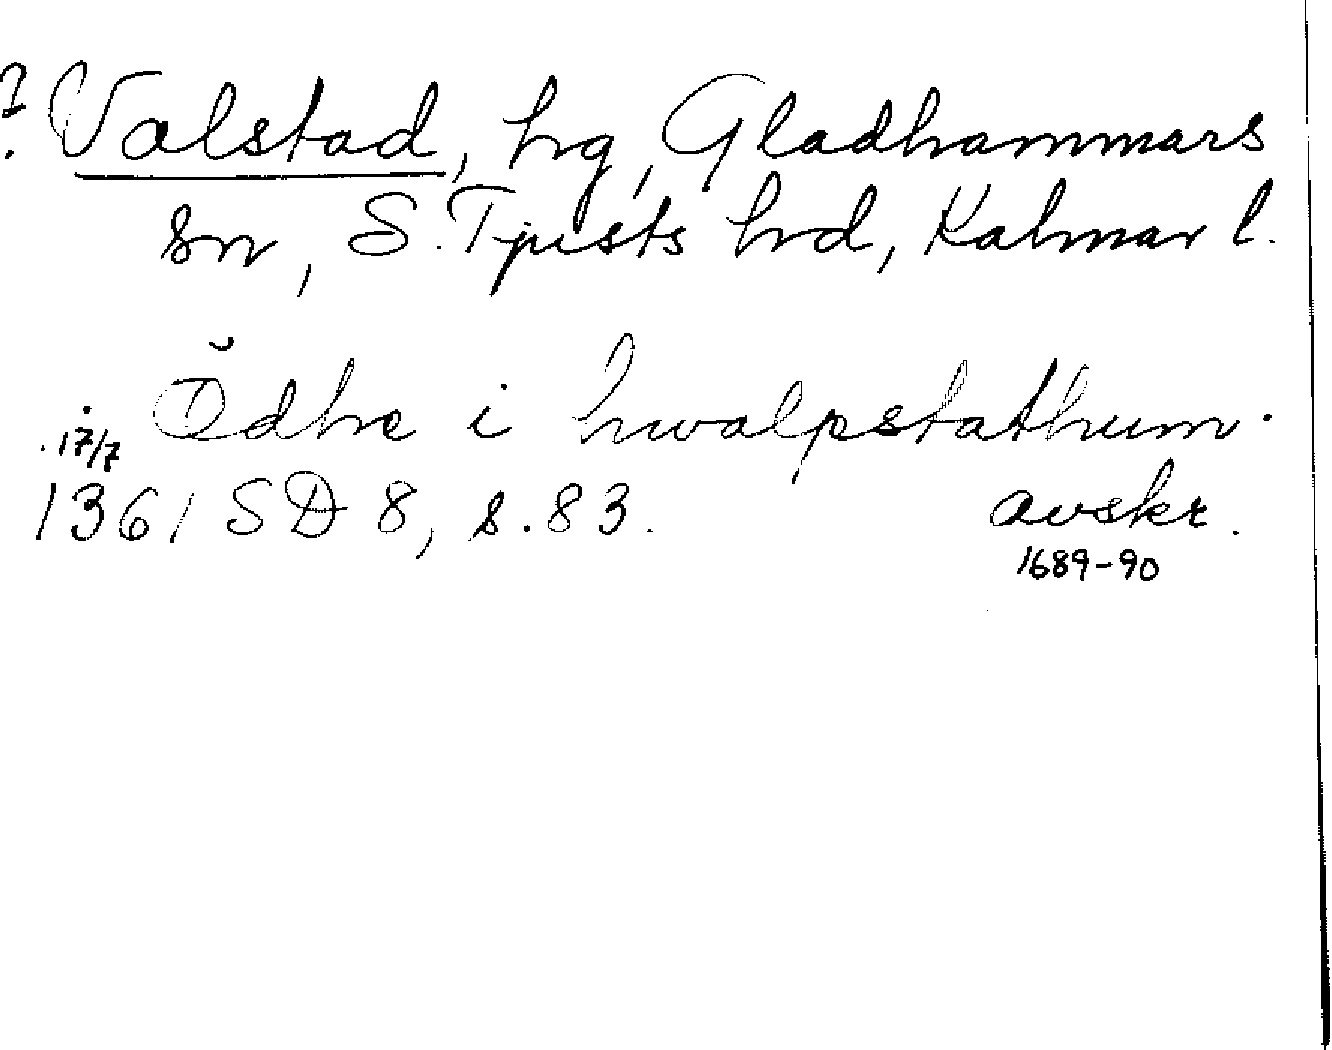 ? Valstad, hg, Gladhammars
sn, S. Tjusts hd, Kalmar l.
Ödhe i hwalpstathum.
17/7
1361 SD 8, s. 83. avskr.
1689-90